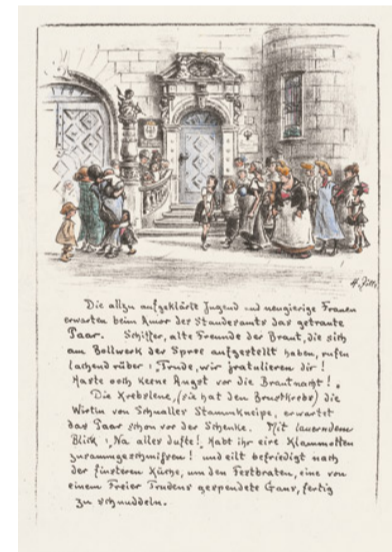 H. Zille
Die allzu aufgeklärte Jugend und neugierige Frauen
erwarten beim Amor des Standesamts das getraute
Paar. Schiffer, alte Freunde der Braut, die sich
am Bollwerk der Spree aufgestellt haben, rufen
lachend rüber: „Trude, wir jratulieren dir!
Haste ooch keene Angst vor die Brautnacht!"
Die Krebslene, (sie hat den Brustkrebs) die
Wirtin von Schnalles Stammkneipe, erwartet
das Paar schon vor der Schenke. Mit lauerndem
Blick: „Na alles dufte! Habt ihr eire Klammotten
zusammgeschmissen! und eilt befriedigt nach
der finsteren Küche, um den Festbraten, eine von
einem Freier Trudens gespendete Gans, fertig
zu schnuddeln.